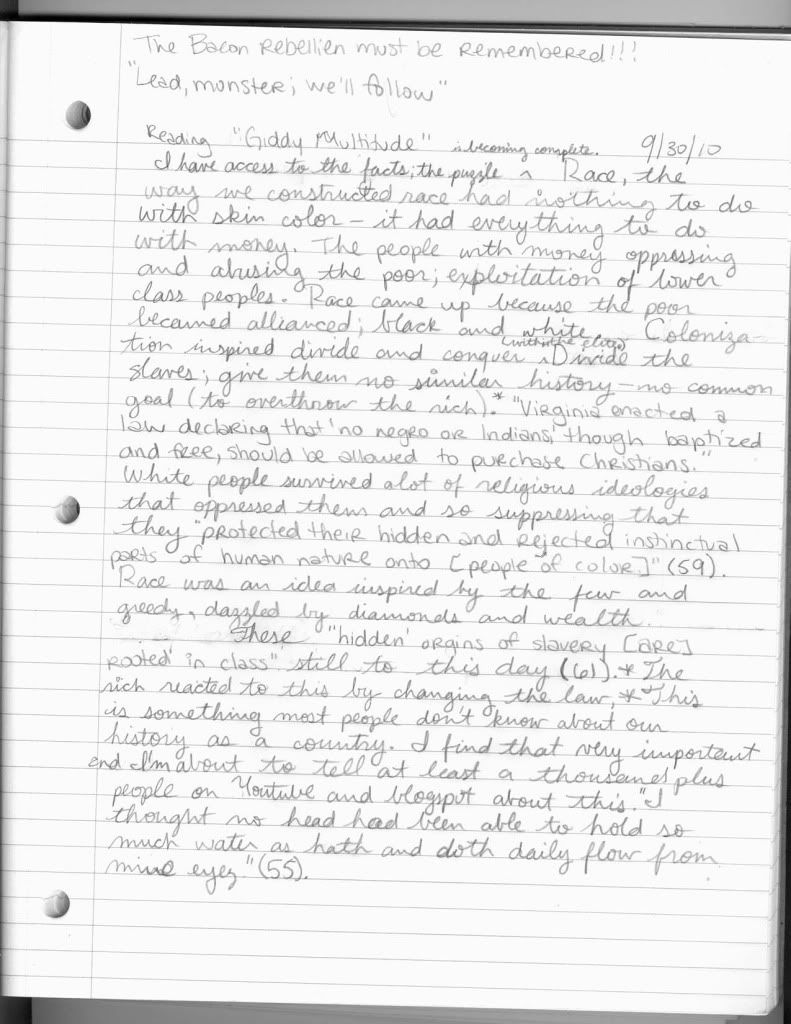 The Bacon Rebellien must be remembered!!!
"Lead, monster; we'll follow"
Reading "Giddy Multitude" is becoming complete. 9/30/10
I have access to the facts; the puzzle ^ Race, the
way we constructed race had nothing to do
with skin color – it had everything to do
with money. The people with money oppressing
and abusing the poor; exploitation of lower
class peoples. Race came up because the poor
becamed allianced; black and white. Coloniza-
tion inspired divide and conquer ^ (within the elites) Divide the
slaves; give them no similar history – no common
goal (to overthrow the rich).* "Virginia enacted a
law declaring that 'no negro or Indians' though baptized
and free, should be allowed to purchase Christians."
White people survived alot of religious ideologies
that oppressed them and so suppressing that
they "protected their hidden and rejected instinctual
parts of human nature onto [people of color]" (59).
Race was an idea inspired by the few and
greedy, dazzled by diamonds and wealth.
These "'hidden' orgins of slavery [are]
rooted in class" still to this day (61).* The
rich reacted to this by changing the law,* This
is something most people don't know about our
history as a country. I find that very important
and I'm about to tell at least a thousand plus
people on Youtube and blogspot about this. "I
thought no head had been able to hold so
much water as hath and doth daily flow from
mine eyes." (55).